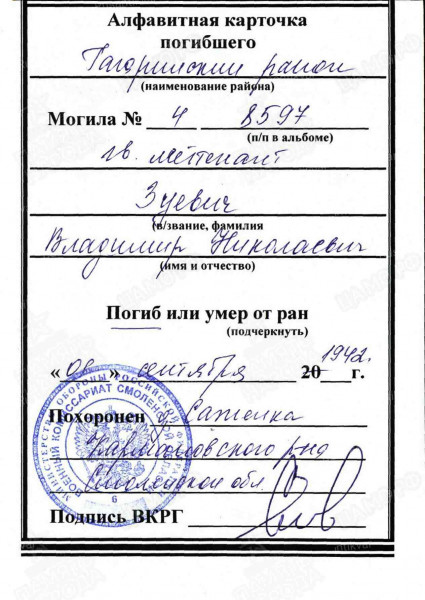 Алфавитная карточка
погибшего
Гагаринский район
(наименование района)
Могила № 4 8597
(п/п в альбоме)
гв. лейтенант
Зуевич
(в/звание, фамилия
Владимир Николаевич
(имя и отчество)
Погиб или умер от ран
(подчеркнуть)
« 08 » сентября 1942. 20 г.
Похоронен Саженка
Кармановского р-на
Смоленской обл.
Подпись ВКРГ
МИНИСТЕРСТВО ОБОРОНЫ РОССИЙСКОЙ ФЕДЕРАЦИИ
ВОЕННЫЙ КОМИССАРИАТ СМОЛЕНСКОЙ
6